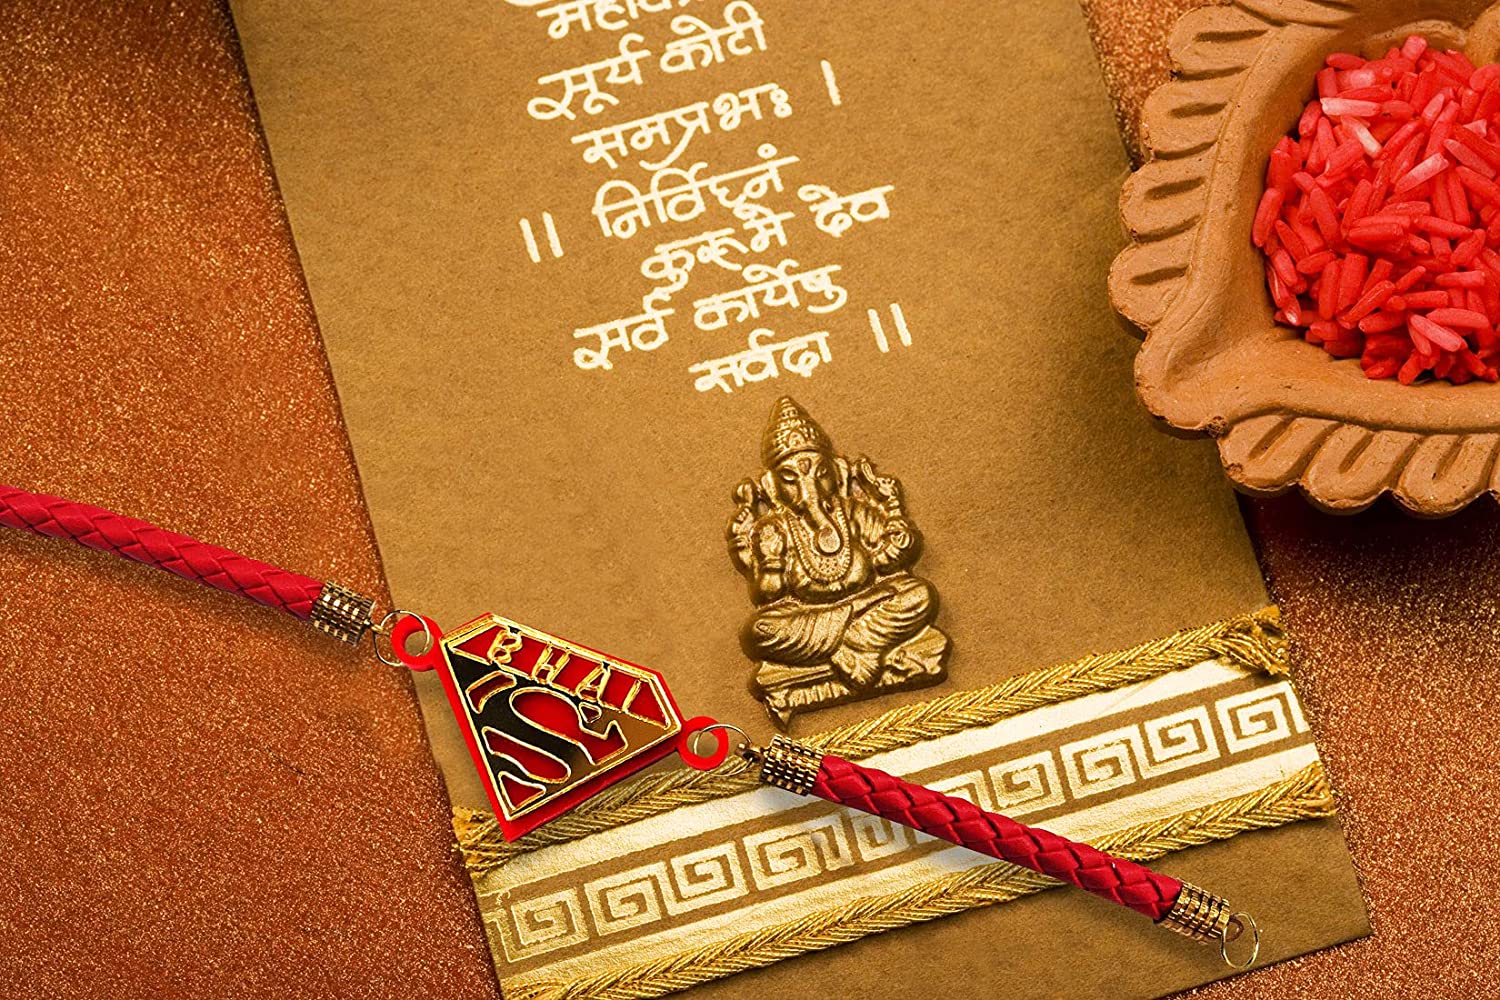 सूर्य कोटी
समप्रभः ।
॥ निर्विघ्नं
कुरूमे देव
सर्व कार्येषु
सर्वदा ॥
BHAI